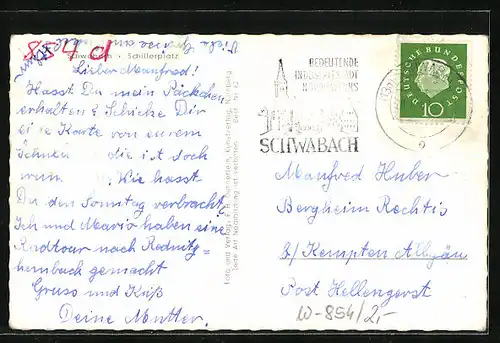 854 d
Schwabach - Schillerplatz
Lieber Manfred!
Hasst Du mein Päckchen
erhalten? Schicke Dir
eine Karte von eurem
die ist doch
Wie hasst
Du den Sonntag verbracht
Ich und Mario haben eine
Radtour nach Rednitz=
hembach gemacht
Gruss und Kuß
Deine Mutter.
BEDEUTENDE
INDUSTRIESTADT
NORDBAYERNS
SCHWABACH
DEUTSCHE BUNDESPOST
10
Manfred Huber
Bergheim Rechtis
b/ Kempten Allgäu
Post Hellengerst
W-854/2,-